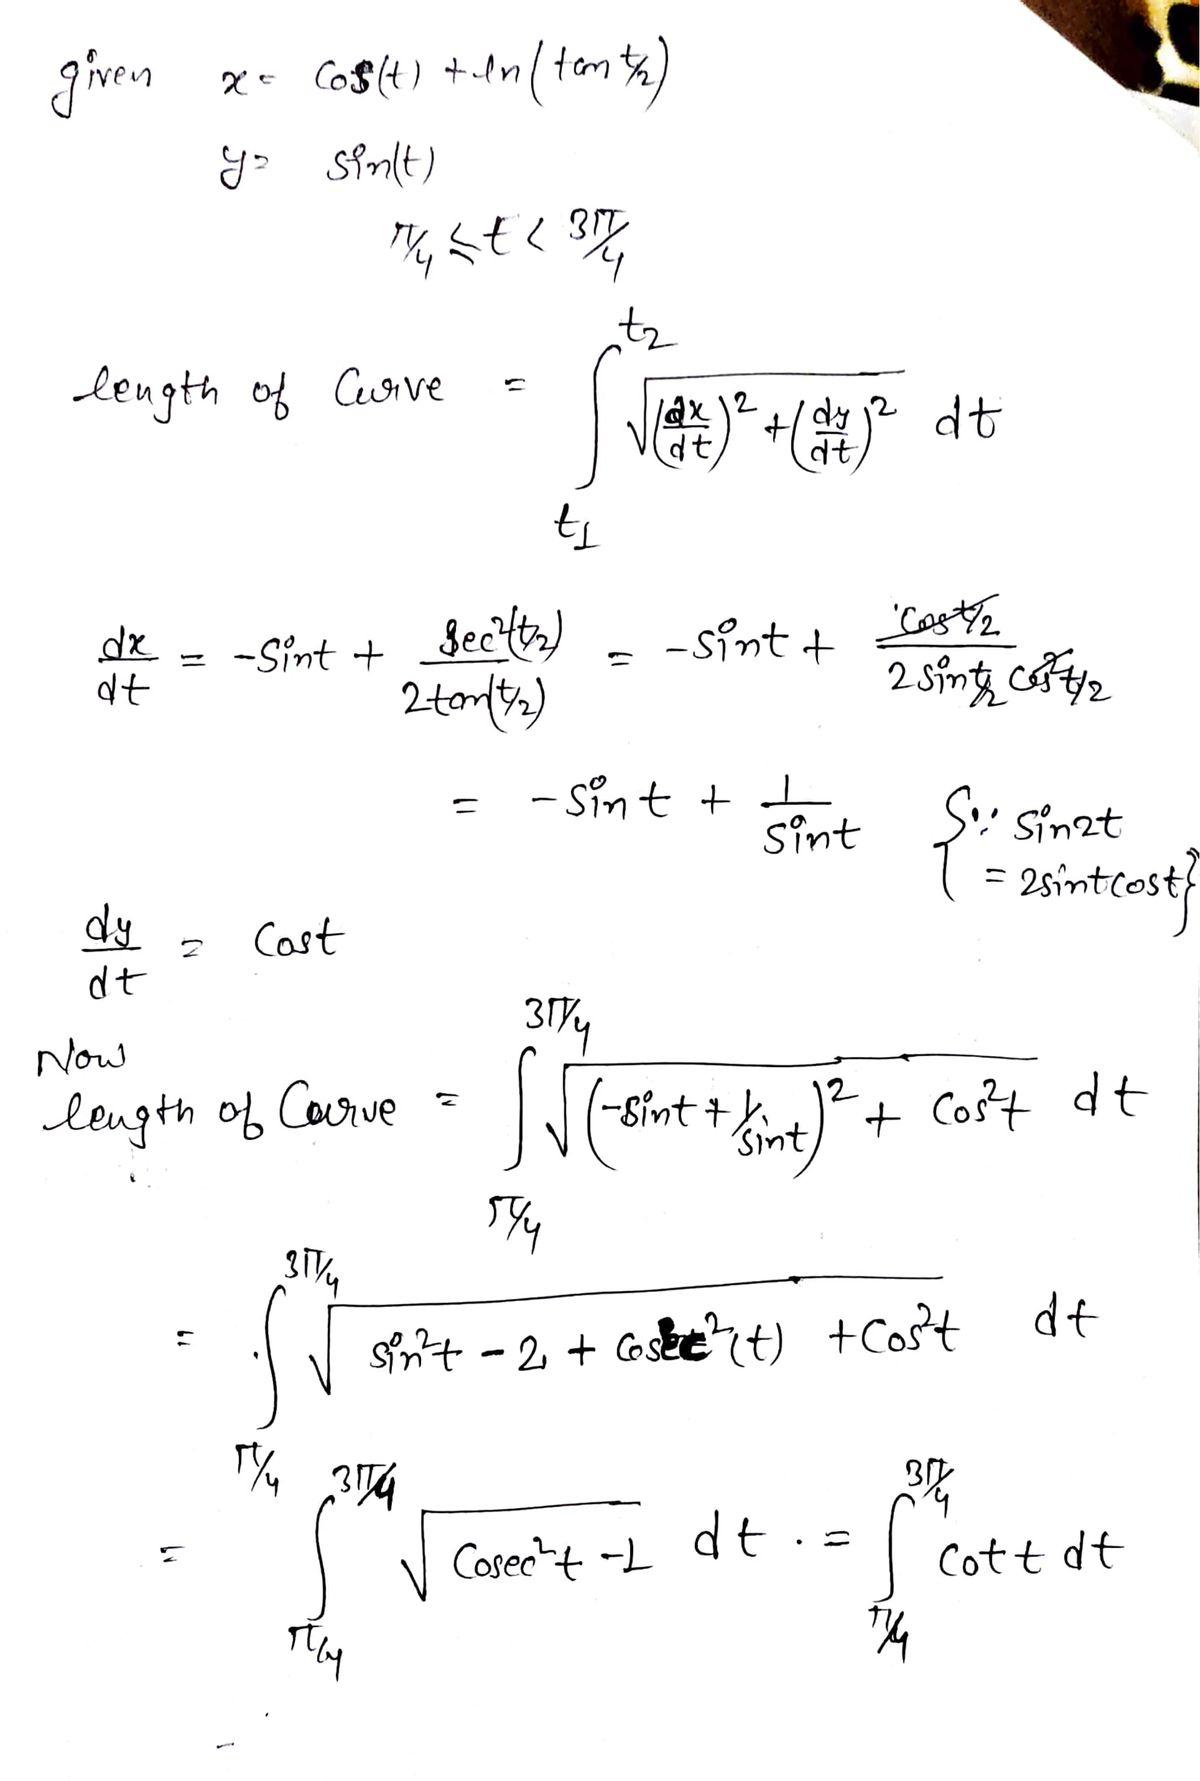 given x = Cos(t) + ln(tan t/2)
y = sin(t)
π/4 ≤ t < 3π/4
length of Curve = ∫_{t1}^{t2} √((dx/dt)² + (dy/dt)²) dt
dx/dt = -Sint + Sec²(t/2)/2tan(t/2) = -sint + Cos t/2 / 2 sin t/2 cos² t/2
= -Sint + 1/Sint {∵ Sin2t
= 2sintcost}
dy/dt = Cost
Now
length of Curve = ∫_{π/4}^{3π/4} √((-Sint + 1/Sint)² + Cos²t) dt
= ∫_{π/4}^{3π/4} √(Sin²t - 2 + Cosec²(t) + Cos²t) dt
= ∫_{π/4}^{3π/4} √(Cosec²t - 1) dt . = ∫_{π/4}^{3π/4} Cot t dt